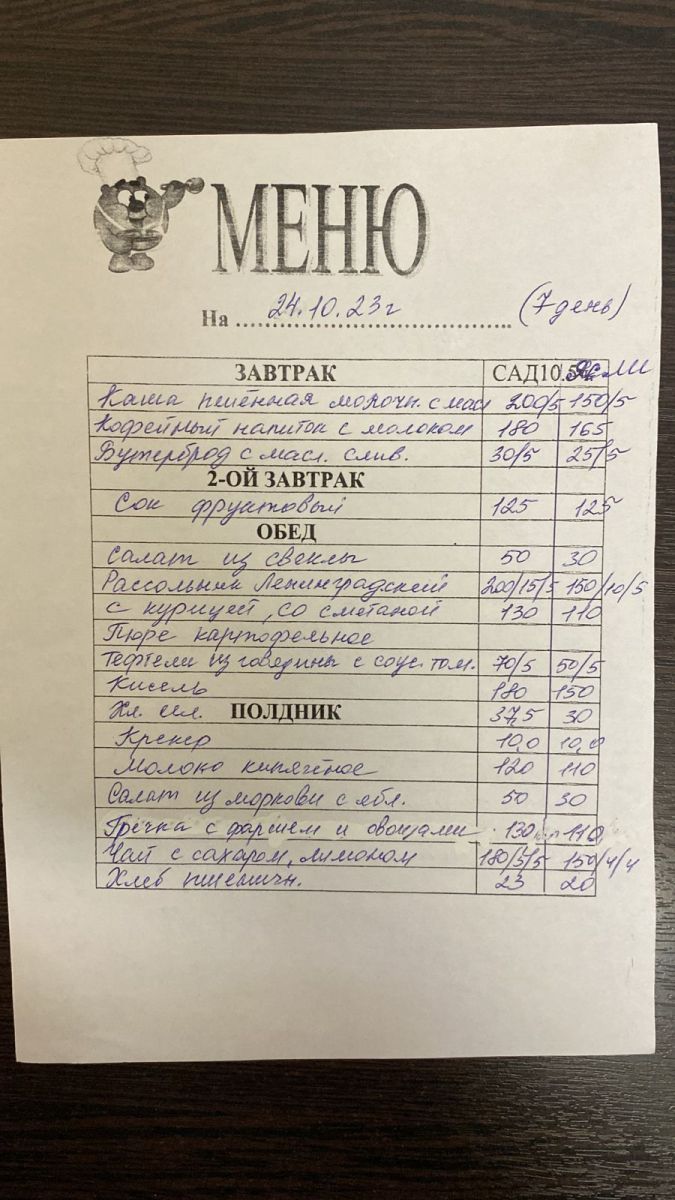 МЕНЮ
На 24.10.23г (7 день)
ЗАВТРАК САД10.5 Ясли
Каша пшённая молочн. с масл 200/5 150/5
Кофейный напиток с молоком 180 165
Бутерброд с масл. слив. 30/5 25/5
2-ОЙ ЗАВТРАК
Сок фруктовый 125 125
ОБЕД
Салат из свеклы 50 30
Рассольник Ленинградский 200/15/5 150/10/5
с курицей, со сметаной 130 110
Пюре картофельное
Тефтели из говядины с соус. том. 70/5 50/5
Кисель 180 150
Хл. ПОЛДНИК 37,5 30
Крекер 10,0 10,0
Молоко кипячёное 120 110
Салат из моркови с ябл. 50 30
Гречка с фаршем и овощами 130 110
Чай с сахаром, лимоном 180/5/5 150/4/4
Хлеб пшеничн. 23 20